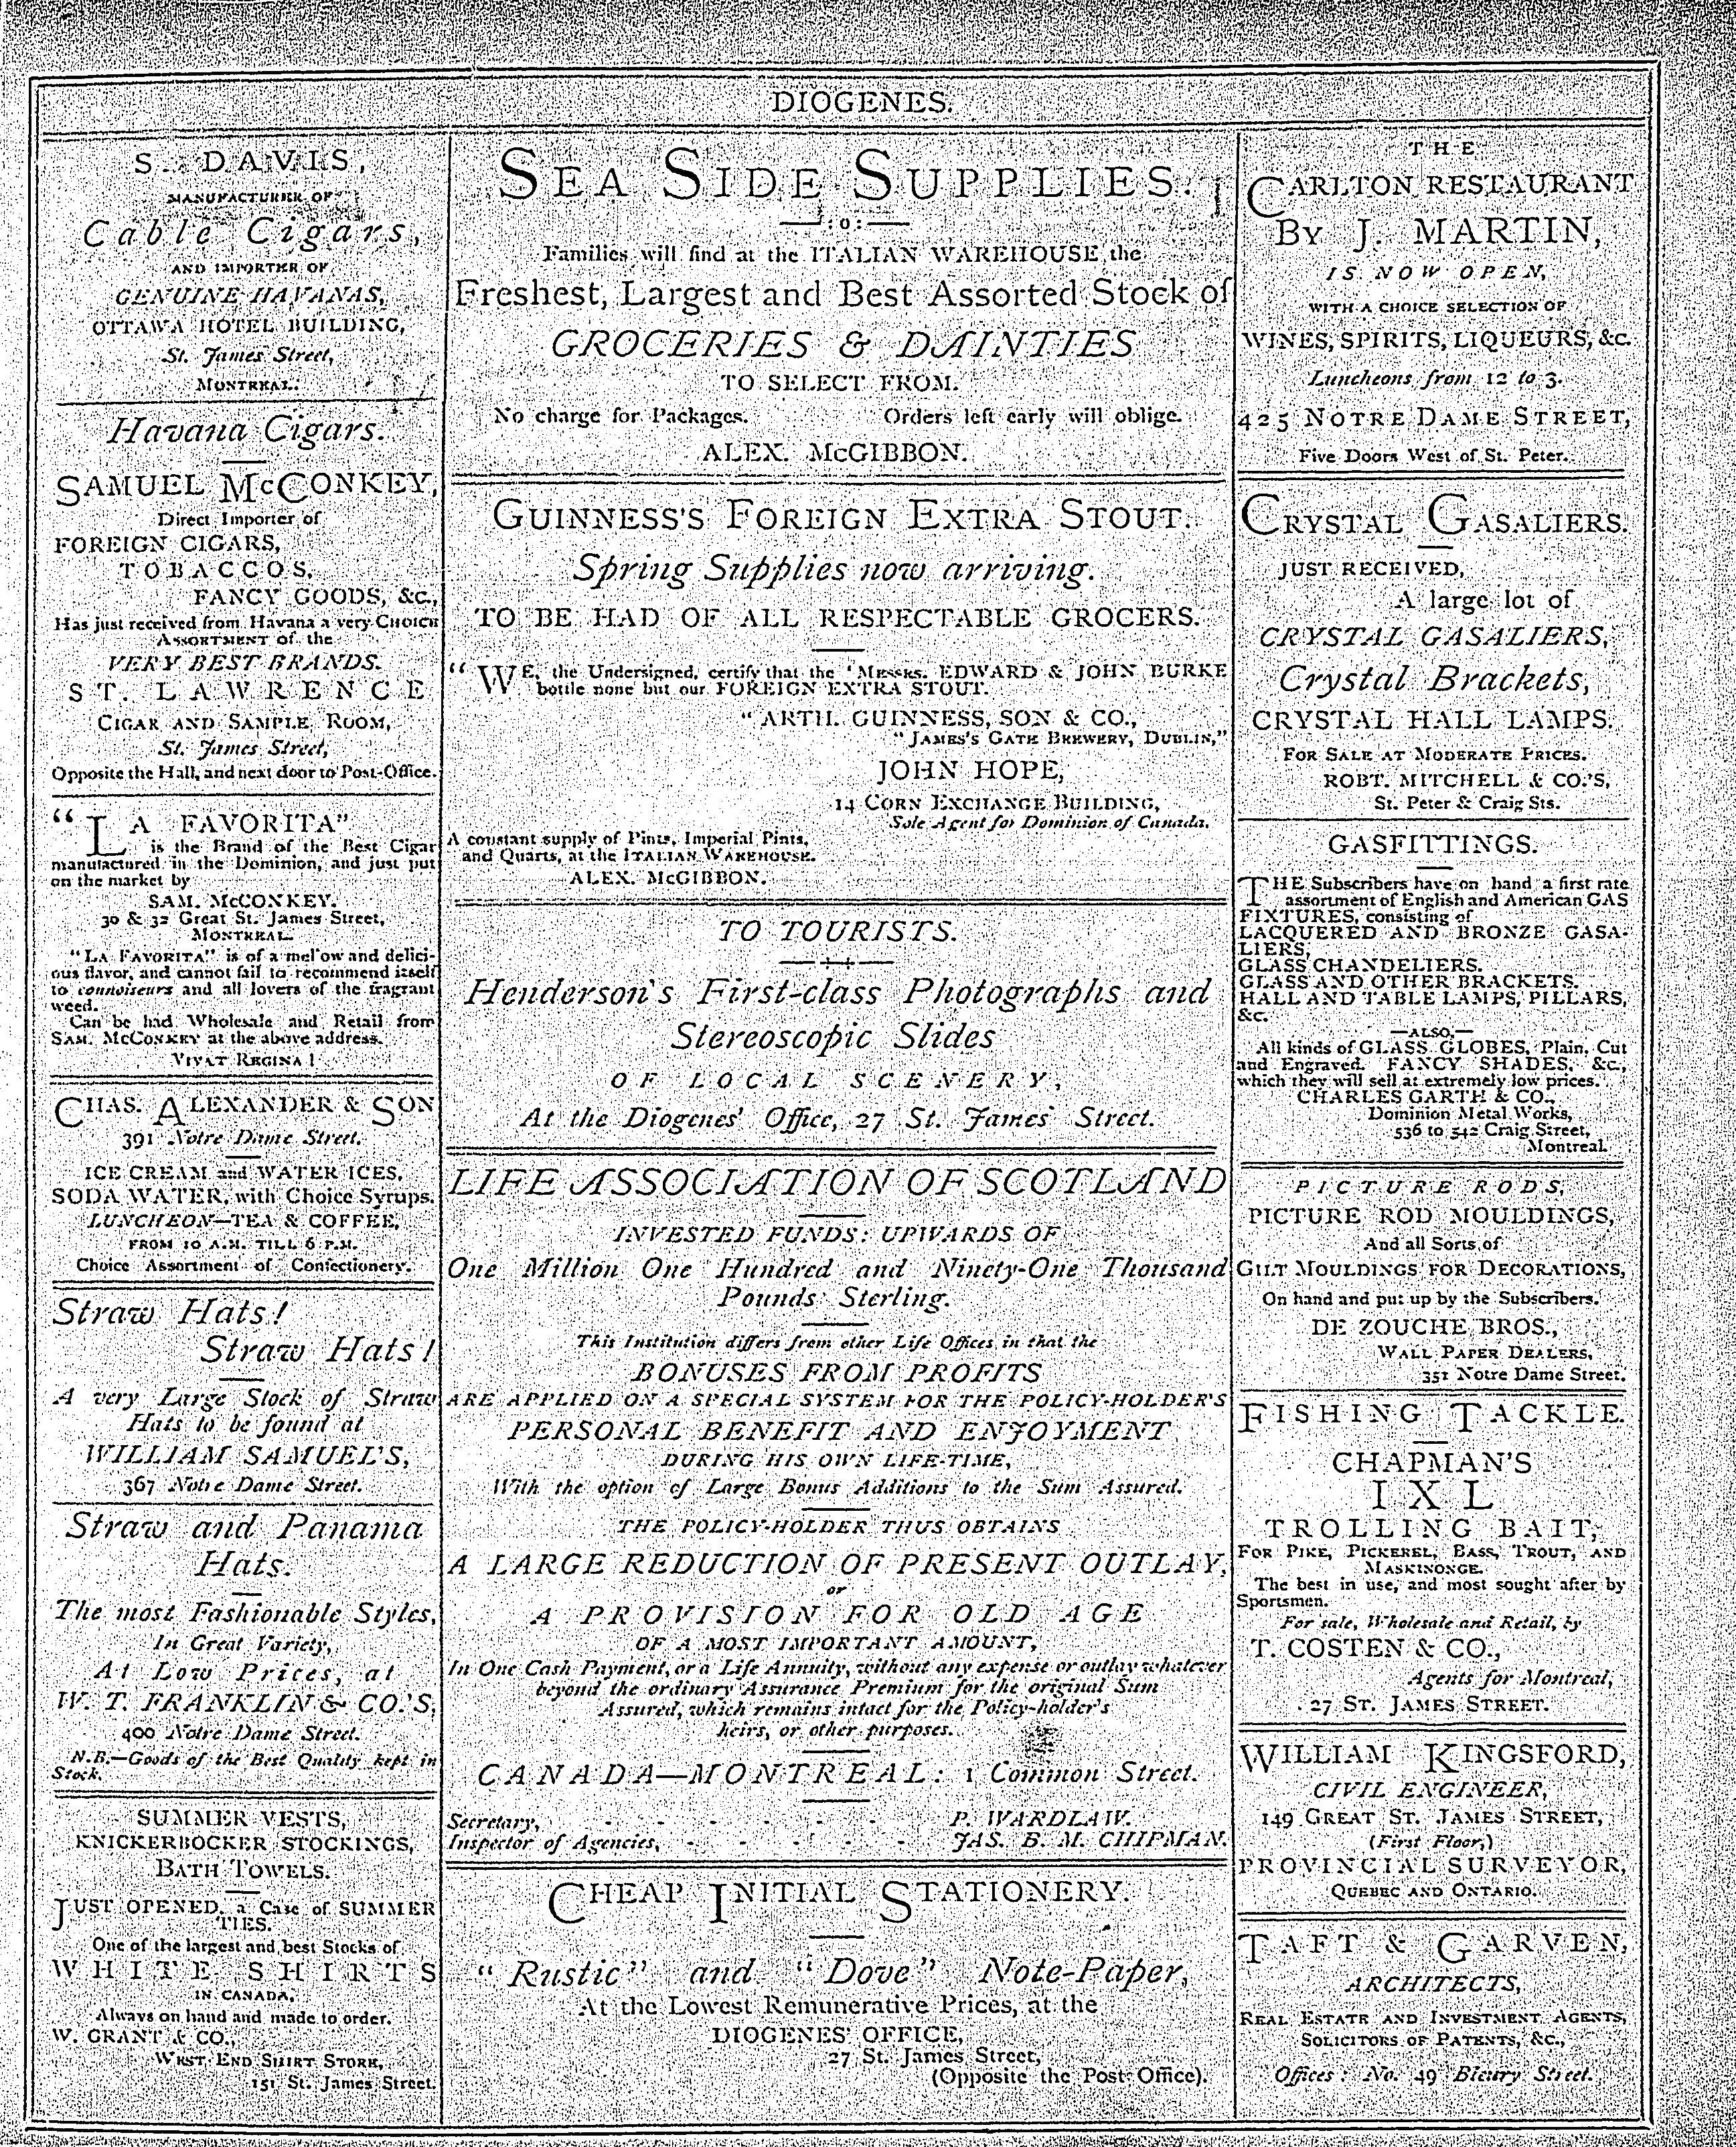 DIOGENES.
S. DAVIS,
MANUFACTURER OF
Cable Cigars,
AND IMPORTER OF
GENUINE HAVANAS,
OTTAWA HOTEL BUILDING,
St. James Street,
MONTREAL.
Havana Cigars.
SAMUEL McCONKEY,
Direct Importer of
FOREIGN CIGARS,
TOBACCOS,
FANCY GOODS, &c.,
Has just received from Havana a very CHOICE
ASSORTMENT of the
VERY BEST BRANDS.
ST. LAWRENCE
CIGAR AND SAMPLE ROOM,
St. James Street,
Opposite the Hall, and next door to Post-Office.
"LA FAVORITA"
is the Brand of the Best Cigar
manufactured in the Dominion, and just put
on the market by
SAM. McCONKEY.
30 & 32 Great St. James Street,
MONTREAL.
"LA FAVORITA" is of a mellow and delici-
ous flavor, and cannot fail to recommend itself
to connoiseurs and all lovers of the fragrant
weed.
Can be had Wholesale and Retail from
SAM. McCONKEY at the above address.
VIVAT REGINA!
CHAS. ALEXANDER & SON
391 Notre Dame Street.
ICE CREAM and WATER ICES,
SODA WATER, with Choice Syrups.
LUNCHEON—TEA & COFFEE,
FROM 10 A.M. TILL 6 P.M.
Choice Assortment of Confectionery.
Straw Hats!
Straw Hats!
A very Large Stock of Straw
Hats to be found at
WILLIAM SAMUEL'S,
367 Notre Dame Street.
Straw and Panama
Hats.
The most Fashionable Styles,
In Great Variety,
At Low Prices, at
W. T. FRANKLIN & CO.'S,
400 Notre Dame Street.
N.B.—Goods of the Best Quality kept in
Stock.
SUMMER VESTS,
KNICKERBOCKER STOCKINGS,
BATH TOWELS.
JUST OPENED, a Case of SUMMER
TIES.
One of the largest and best Stocks of
WHITE SHIRTS
IN CANADA,
Always on hand and made to order.
W. GRANT & CO.,
WEST END SHIRT STORE,
151 St. James Street.
SEA SIDE SUPPLIES.
:o:
Families will find at the ITALIAN WAREHOUSE the
Freshest, Largest and Best Assorted Stock of
GROCERIES & DAINTIES
TO SELECT FROM.
No charge for Packages. Orders left early will oblige.
ALEX. McGIBBON.
GUINNESS'S FOREIGN EXTRA STOUT.
Spring Supplies now arriving.
TO BE HAD OF ALL RESPECTABLE GROCERS.
"WE, the Undersigned, certify that the 'MESSRS. EDWARD & JOHN BURKE
bottle none but our FOREIGN EXTRA STOUT.
"ARTH. GUINNESS, SON & CO.,
"JAMES'S GATE BREWERY, DUBLIN,"
JOHN HOPE,
14 CORN EXCHANGE BUILDING,
Sole Agent for Dominion of Canada.
A constant supply of Pints, Imperial Pints,
and Quarts, at the ITALIAN WAREHOUSE.
ALEX. McGIBBON.
TO TOURISTS.
Henderson's First-class Photographs and
Stereoscopic Slides
OF LOCAL SCENERY,
At the Diogenes' Office, 27 St. James Street.
LIFE ASSOCIATION OF SCOTLAND
INVESTED FUNDS: UPWARDS OF
One Million One Hundred and Ninety-One Thousand
Pounds Sterling.
This Institution differs from other Life Offices in that the
BONUSES FROM PROFITS
ARE APPLIED ON A SPECIAL SYSTEM FOR THE POLICY-HOLDER'S
PERSONAL BENEFIT AND ENJOYMENT
DURING HIS OWN LIFE-TIME,
With the option of Large Bonus Additions to the Sum Assured.
THE POLICY-HOLDER THUS OBTAINS
A LARGE REDUCTION OF PRESENT OUTLAY,
or
A PROVISION FOR OLD AGE
OF A MOST IMPORTANT AMOUNT,
In One Cash Payment, or a Life Annuity, without any expense or outlay whatever
beyond the ordinary Assurance Premium for the original Sum
Assured, which remains intact for the Policy-holder's
heirs, or other purposes.
CANADA—MONTREAL: 1 Common Street.
Secretary, - - - - - - P. WARDLAW.
Inspector of Agencies, - - - - - JAS. B. M. CHIPMAN.
CHEAP INITIAL STATIONERY.
"Rustic" and "Dove" Note-Paper,
At the Lowest Remunerative Prices, at the
DIOGENES' OFFICE,
27 St. James Street,
(Opposite the Post-Office).
THE
CARLTON RESTAURANT
BY J. MARTIN,
IS NOW OPEN,
WITH A CHOICE SELECTION OF
WINES, SPIRITS, LIQUEURS, &c.
Luncheons from 12 to 3.
425 NOTRE DAME STREET,
Five Doors West of St. Peter.
CRYSTAL GASALIERS.
JUST RECEIVED,
A large lot of
CRYSTAL GASALIERS,
Crystal Brackets,
CRYSTAL HALL LAMPS.
FOR SALE AT MODERATE PRICES.
ROBT. MITCHELL & CO.'S,
St. Peter & Craig Sts.
GASFITTINGS.
THE Subscribers have on hand a first rate
assortment of English and American GAS
FIXTURES, consisting of
LACQUERED AND BRONZE GASA-
LIERS,
GLASS CHANDELIERS.
GLASS AND OTHER BRACKETS.
HALL AND TABLE LAMPS, PILLARS,
&c.
—ALSO,—
All kinds of GLASS GLOBES, Plain, Cut
and Engraved. FANCY SHADES, &c.,
which they will sell at extremely low prices.
CHARLES GARTH & CO.,
Dominion Metal Works,
536 to 542 Craig Street,
Montreal.
PICTURE RODS,
PICTURE ROD MOULDINGS,
And all Sorts of
GILT MOULDINGS FOR DECORATIONS,
On hand and put up by the Subscribers.
DE ZOUCHE BROS.,
WALL PAPER DEALERS,
351 Notre Dame Street.
FISHING TACKLE.
CHAPMAN'S
IXL
TROLLING BAIT,
FOR PIKE, PICKEREL, BASS, TROUT, AND
MASKINONGE.
The best in use, and most sought after by
Sportsmen.
For sale, Wholesale and Retail, by
T. COSTEN & CO.,
Agents for Montreal,
27 ST. JAMES STREET.
WILLIAM KINGSFORD,
CIVIL ENGINEER,
149 GREAT ST. JAMES STREET,
(First Floor,)
PROVINCIAL SURVEYOR,
QUEBEC AND ONTARIO.
TAFT & GARVEN,
ARCHITECTS,
REAL ESTATE AND INVESTMENT AGENTS,
SOLICITORS OF PATENTS, &c.,
Offices: No. 49 Bleury Street.